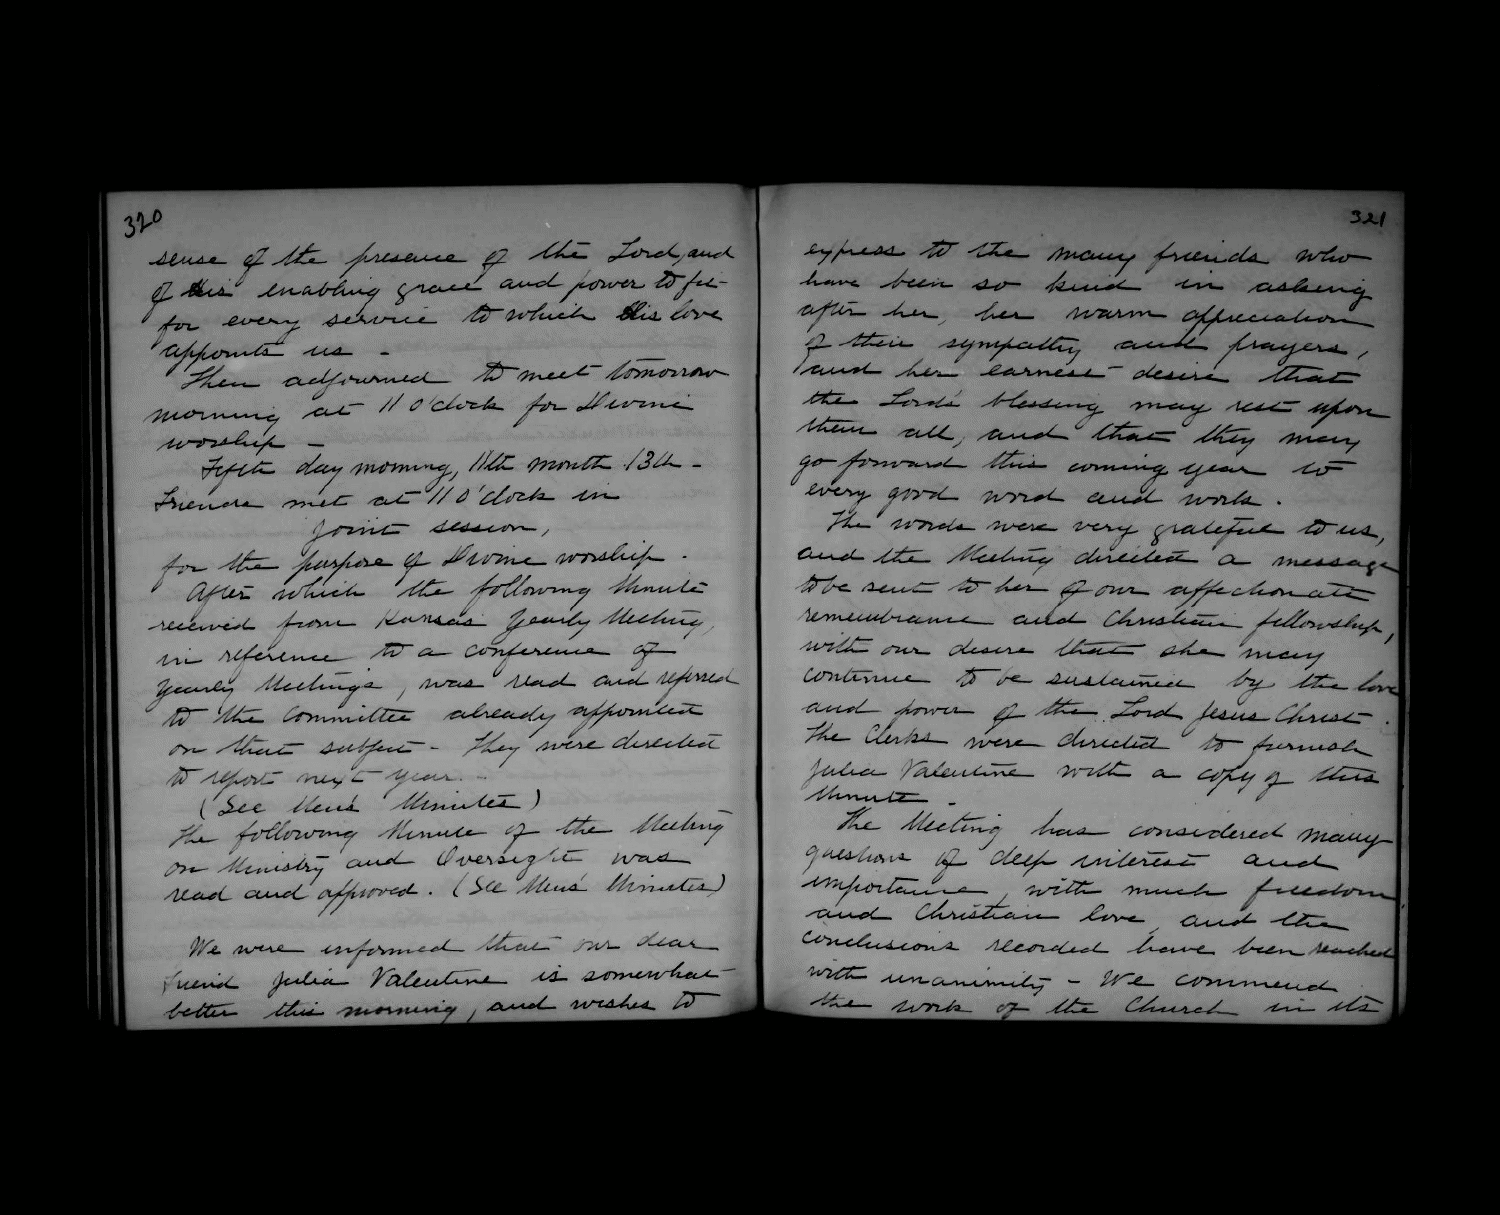 320
sense of the presence of the Lord, and
of His enabling grace and power to fit
for every service to which His love
appoints us -
Then adjourned to meet tomorrow
morning at 11 O'clock for Divine
worship -
Fifth day morning, 11th month 13th -
Friends met at 11 O'clock in
joint session,
for the purpose of Divine worship.
After which the following Minute
received from Kansas Yearly Meeting,
in reference to a conference of
Yearly Meetings, was read and referred
to the Committee already appointed
on that subject - They were directed
to report next year. -
(See Men's Minutes)
The following Minute of the Meeting
on Ministry and Oversight was
read and approved. (See Men's Minutes)
We were informed that our dear
friend Julia Valentine is somewhat
better this morning, and wishes to
321
express to the many friends who
have been so kind in asking
after her, her warm appreciation
of their sympathy and prayers,
and her earnest desire that
the Lord's blessing may rest upon
them all, and that they may
go forward this coming year to
every good word and work.
The words were very grateful to us,
and the Meeting directed a message
to be sent to her of our affectionate
remembrance and Christian fellowship,
with our desire that she may
continue to be sustained by the love
and power of the Lord Jesus Christ.
The Clerks were directed to furnish
Julia Valentine with a copy of this
Minute -
The Meeting has considered many
questions of deep interest and
importance, with much freedom,
and Christian love, and the
conclusions recorded have been reached
with unanimity - We commend
the work of the Church in its